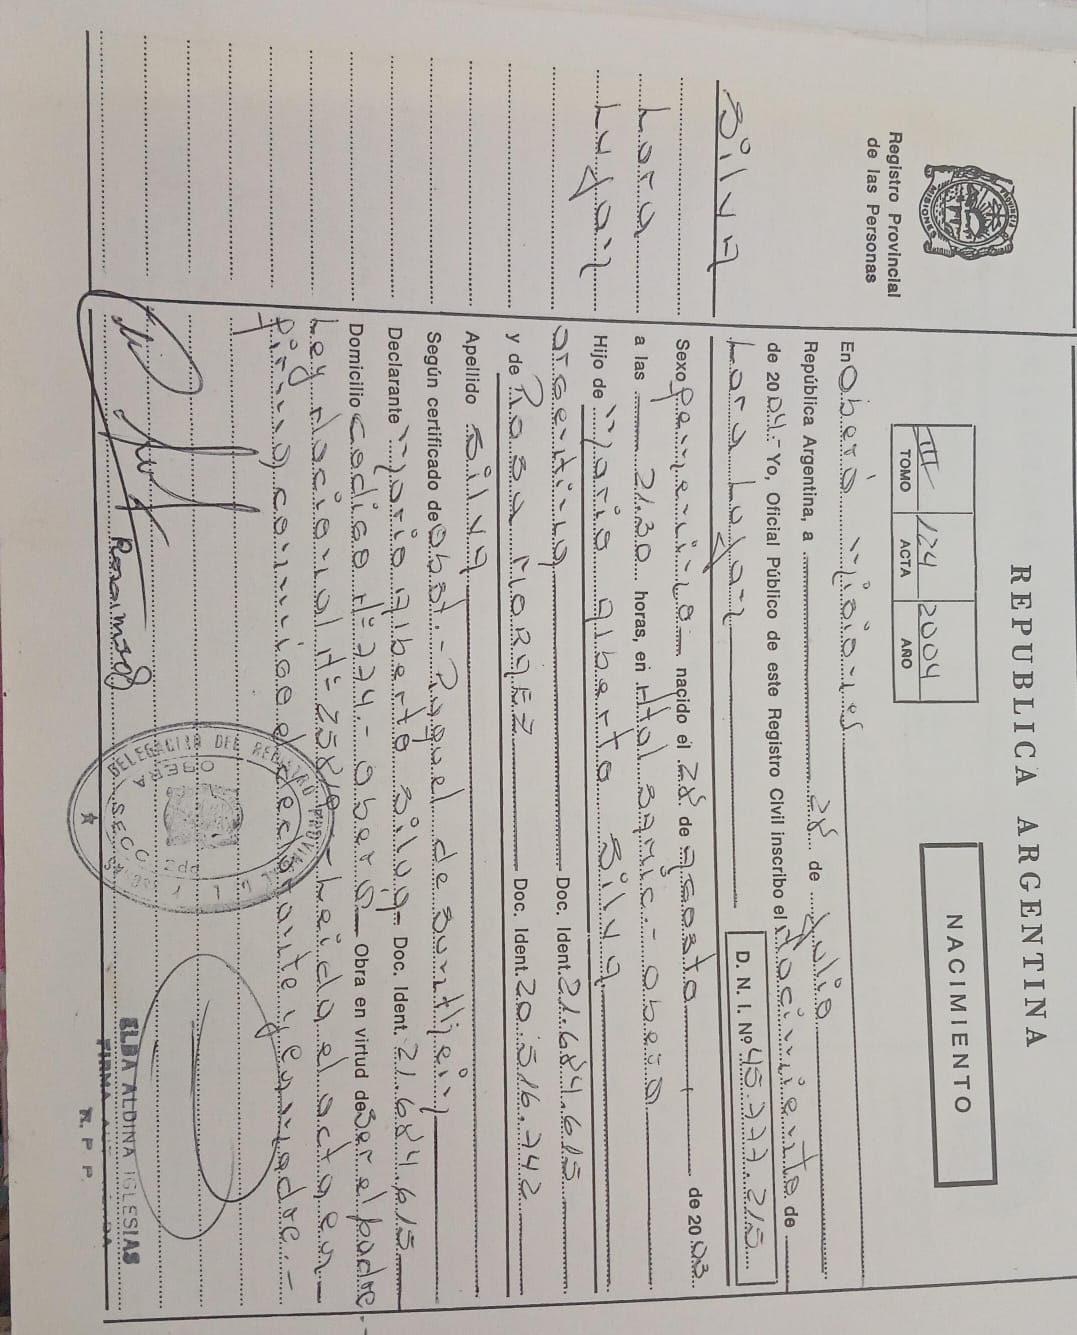 REPUBLICA ARGENTINA
NACIMIENTO
III 124 2004
TOMO ACTA AÑO
PROVINCIA DE MISIONES
Registro Provincial
de las Personas
Silva
Lara
Luján
En Oberá Misiones
República Argentina, a 28 de Julio
de 2004.- Yo, Oficial Público de este Registro Civil inscribo el Nacimiento de
Lara Luján
D. N. I. Nº 45.777.215
Sexo Femenino nacido el 28 de Agosto de 2003
a las 21.30 horas, en Htal SAMIC.- Oberá
Hijo de Mario Alberto Silva
argentina Doc. Ident. 21.684.615
y de Rosa Doc. Ident. 20.516.742
Apellido Silva
Según certificado de Obst.- Raquel de
Declarante Mario Alberto Silva Doc. Ident. 21.684.615
Domicilio Código Nº 774.- Oberá Obra en virtud de Ser el padre
Ley Nacional Nº Leída el acta en
firma, conmigo el declarante y
DELEGACION DEL REGISTRO PROVINCIAL
OBERA
SECC
ELBA ALDINA IGLESIAS
R. P. P.